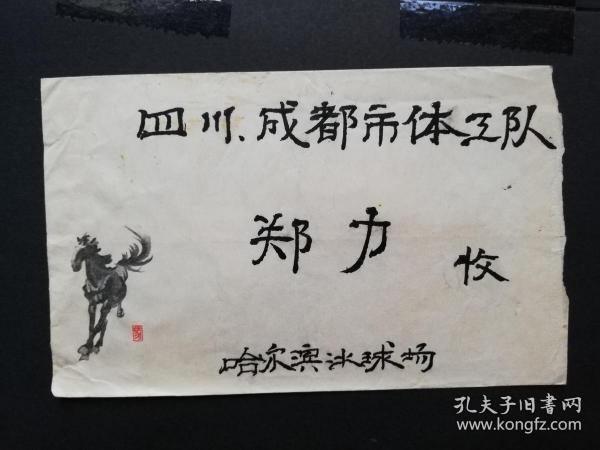 四川、成都市体工队
郑力 收
哈尔滨冰球场
孔夫子旧書网
www.kongfz.com